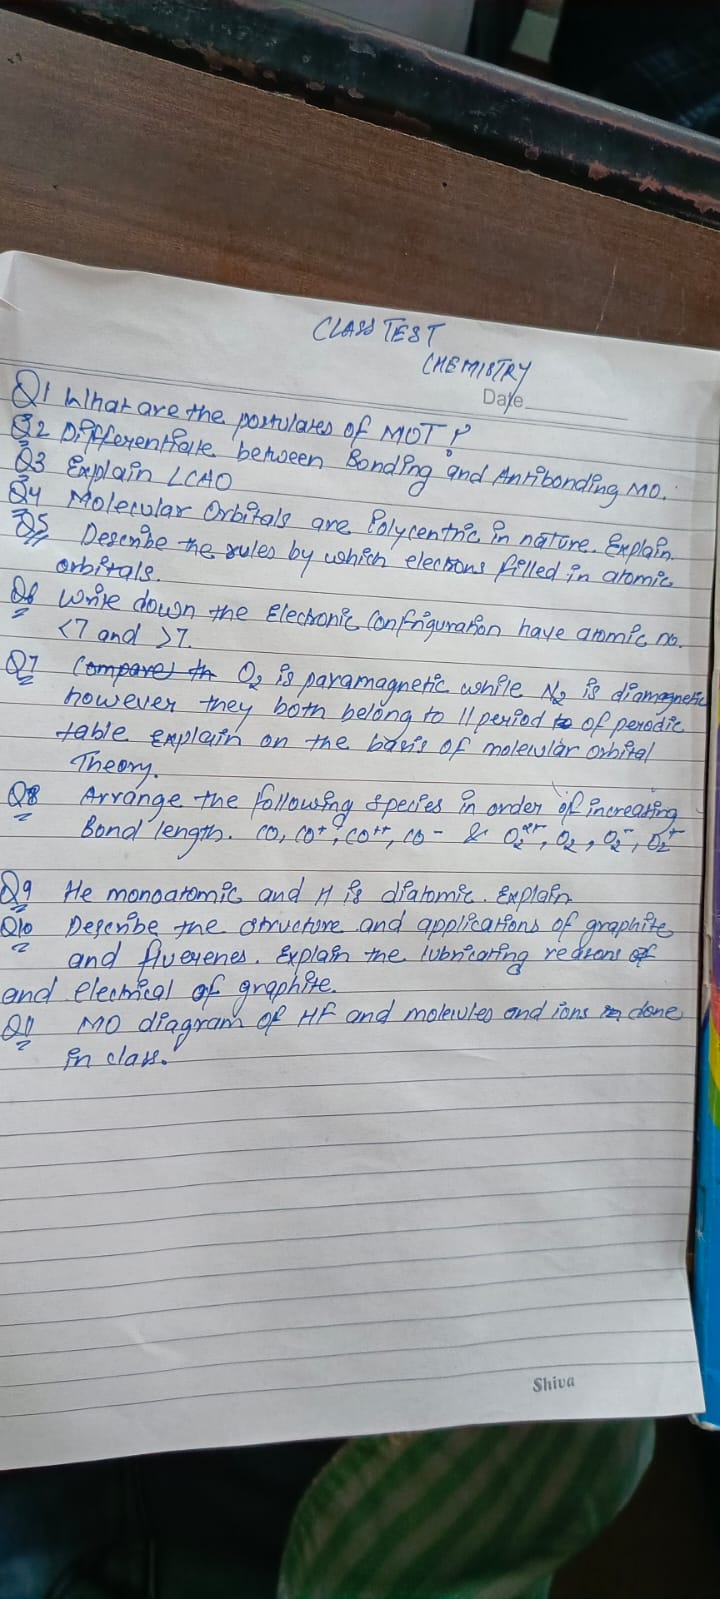 CLASS TEST
CHEMISTRY
Date
Q1 What are the postulates of MOT?
Q2 Differentiate between Bonding and Antibonding MO.
Q3 Explain LCAO
Q4 Molecular Orbitals are Polycentric in nature. Explain.
Q5 Describe the rules by which electrons filled in atomic
orbitals.
Q6 Write down the Electronic Configuration have atomic no.
<7 and >7.
Q7 O2 is paramagnetic while N2 is diamagnetic
however they both belong to II period of perodic
table explain on the basis of molecular orbital
Theory.
Q8 Arrange the following species in order of increasing
Bond length. CO, CO+, CO++, CO- & O2 2+, O2, O2-, O2+
Q9 He monoatomic and H is diatomic. Explain
Q10 Describe the structure and applications of graphite
and fluerenes. Explain the lubricating reasons of
and electrical of graphite.
Q11 MO diagram of HF and molecules and ions done
in class.
Shiva